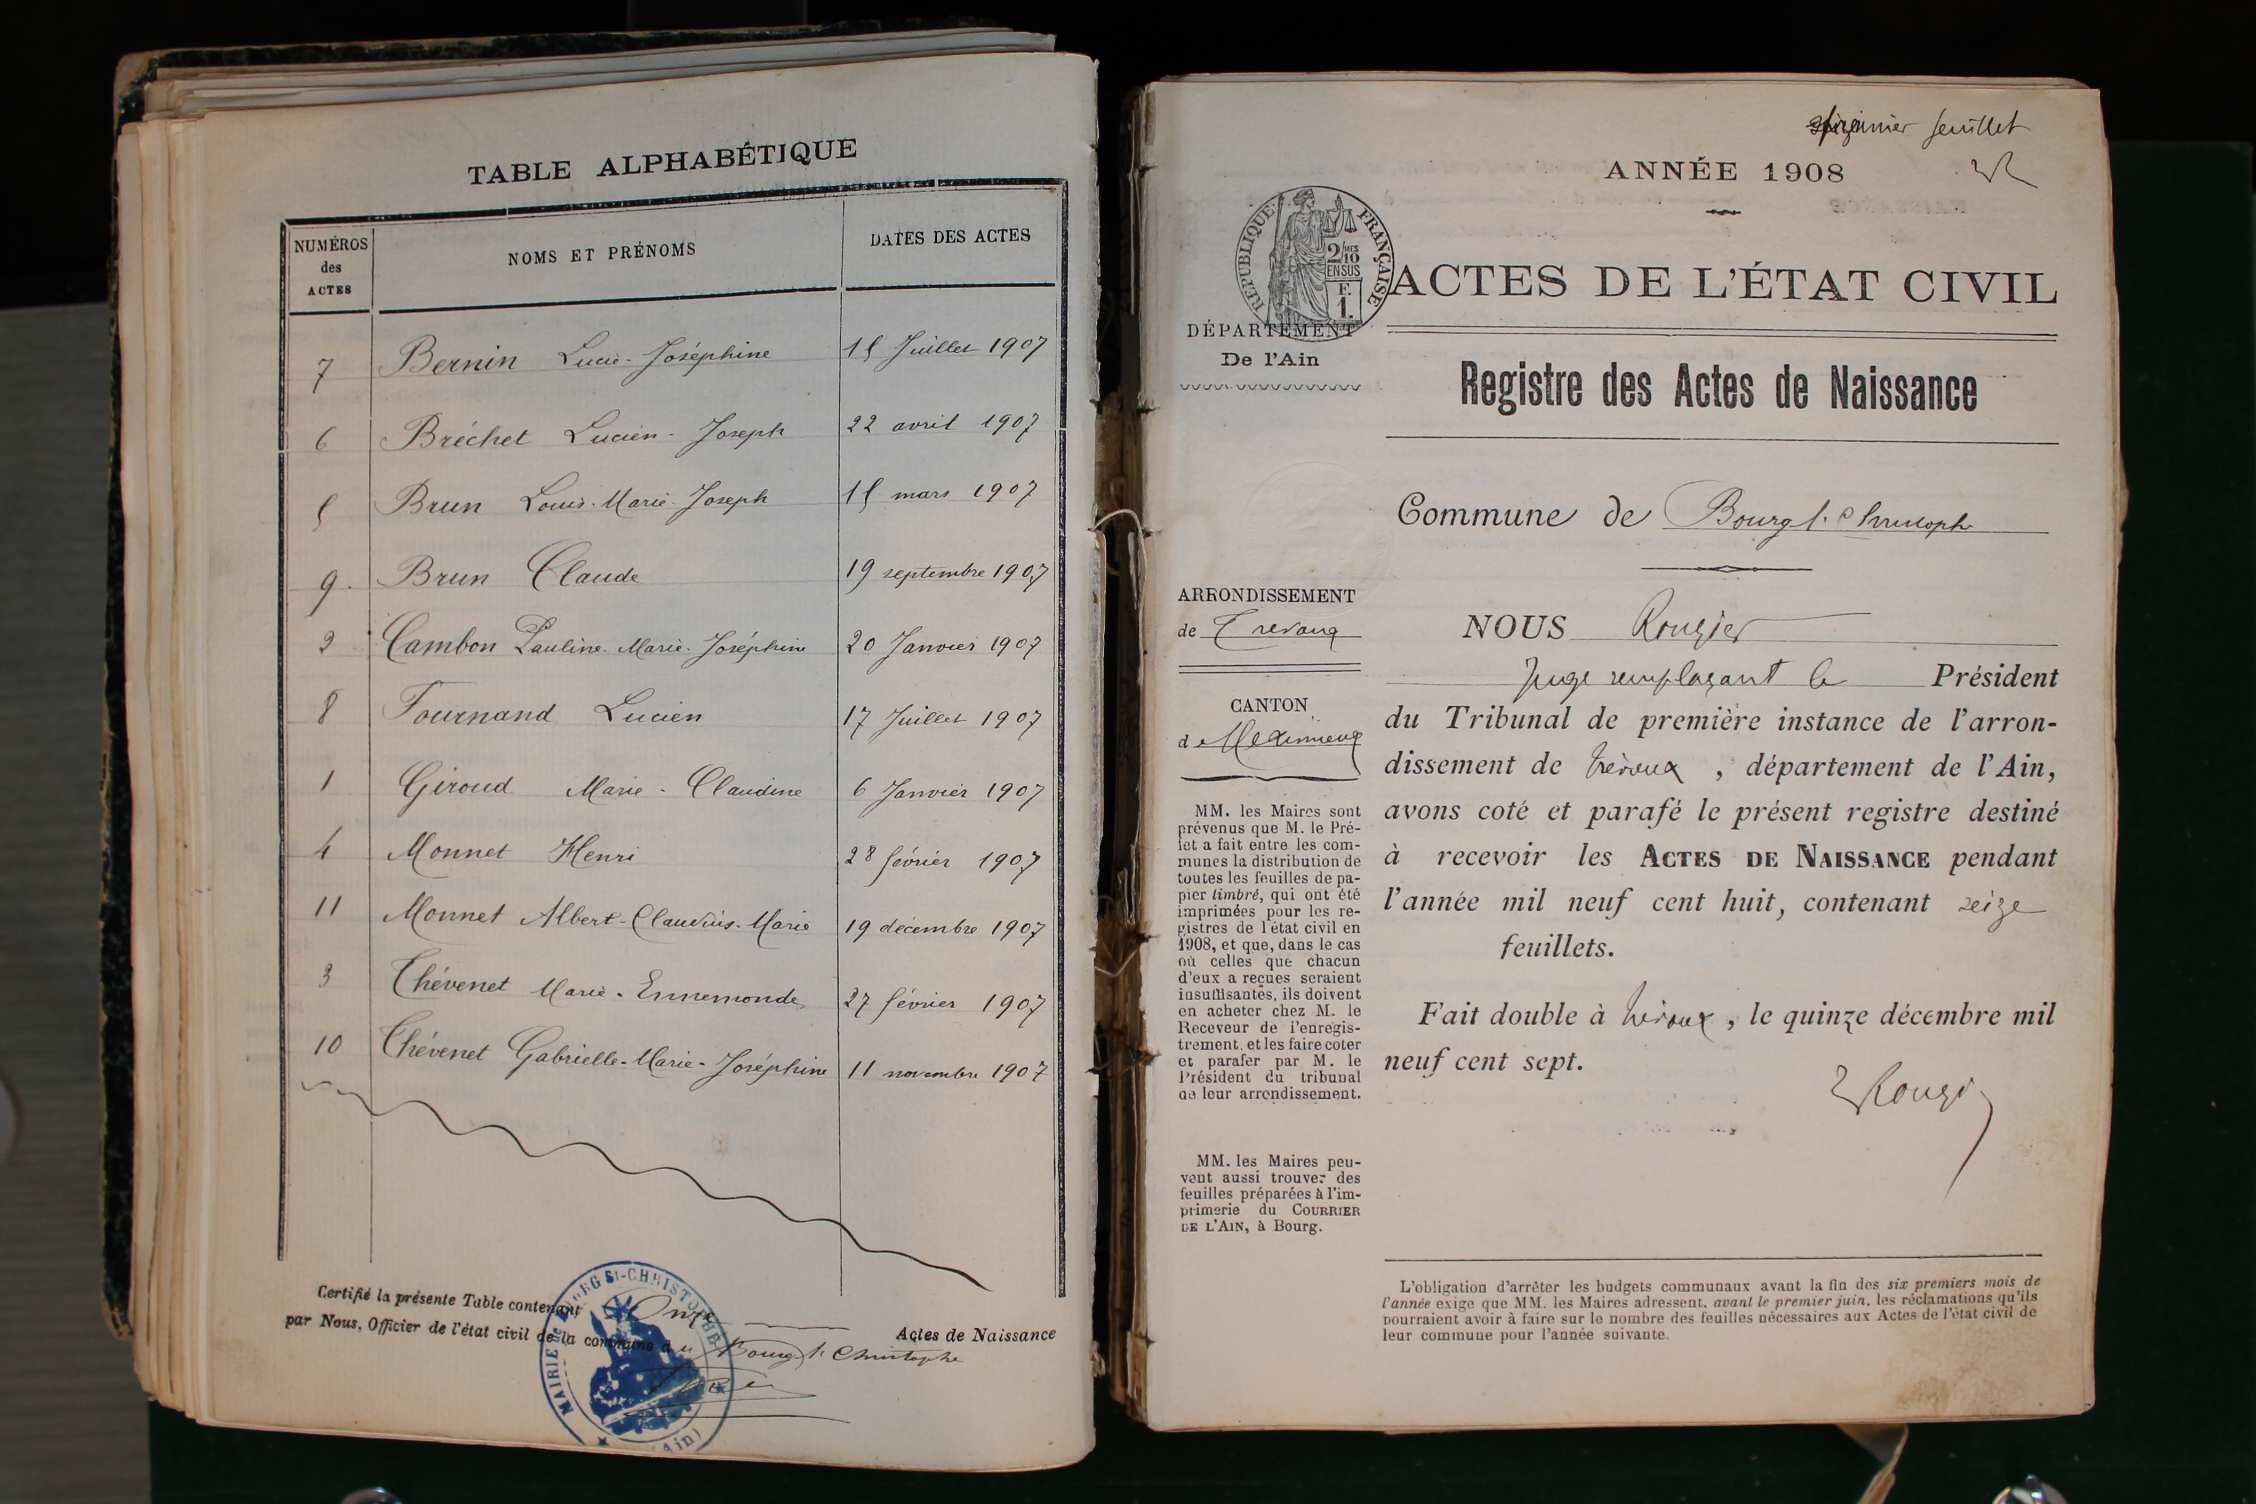 TABLE ALPHABÉTIQUE
NUMÉROS des ACTES
NOMS ET PRÉNOMS
DATES DES ACTES
7 Bernin Lucie-Joséphine 15 Juillet 1907
6 Bréchet Lucien-Joseph 22 avril 1907
5 Brun Louis-Marie-Joseph 15 mars 1907
9. Brun Claude 19 septembre 1907
2 Cambon Pauline-Marie-Joséphine 20 Janvier 1907
8 Fournand Lucien 17 Juillet 1907
1 Giroud Marie-Claudine 6 Janvier 1907
4 Monnet Henri 28 février 1907
11 Monnet Albert-Claudius-Marie 19 décembre 1907
3 Thévenet Marie-Ennemonde 27 février 1907
10 Thévenet Gabrielle-Marie-Joséphine 11 novembre 1907
Certifié la présente Table contenant Onze Actes de Naissance
par Nous, Officier de l'état civil de la commune du Bourg St Christophe
MAIRIE de BOURG St-CHRISTOPHE
(Ain)
premier feuillet
ANNÉE 1908
RÉPUBLIQUE FRANÇAISE
2/10 MES
EN SUS
F.
1.
ACTES DE L'ÉTAT CIVIL
DÉPARTEMENT
De l'Ain
Registre des Actes de Naissance
Commune de Bourg St Christophe
ARRONDISSEMENT
de Trévoux
CANTON
de Meximieux
NOUS Rougier
Juge remplaçant le Président
du Tribunal de première instance de l'arron-
dissement de Trévoux, département de l'Ain,
avons coté et parafé le présent registre destiné
à recevoir les ACTES DE NAISSANCE pendant
l'année mil neuf cent huit, contenant seize
feuillets.
Fait double à Trévoux, le quinze décembre mil
neuf cent sept.
Rougier
MM. les Maires sont
prévenus que M. le Pré-
fet a fait entre les com-
munes la distribution de
toutes les feuilles de pa-
pier timbré, qui ont été
imprimées pour les re-
gistres de l'état civil en
1908, et que, dans le cas
où celles que chacun
d'eux a reçues seraient
insuffisantes, ils doivent
en acheter chez M. le
Receveur de l'enregis-
trement, et les faire coter
et parafer par M. le
Président du tribunal
de leur arrondissement.
MM. les Maires peu-
vent aussi trouver des
feuilles préparées à l'im-
primerie du COURRIER
DE L'AIN, à Bourg.
L'obligation d'arrêter les budgets communaux avant la fin des six premiers mois de
l'année exige que MM. les Maires adressent, avant le premier juin, les réclamations qu'ils
pourraient avoir à faire sur le nombre des feuilles nécessaires aux Actes de l'état civil de
leur commune pour l'année suivante.